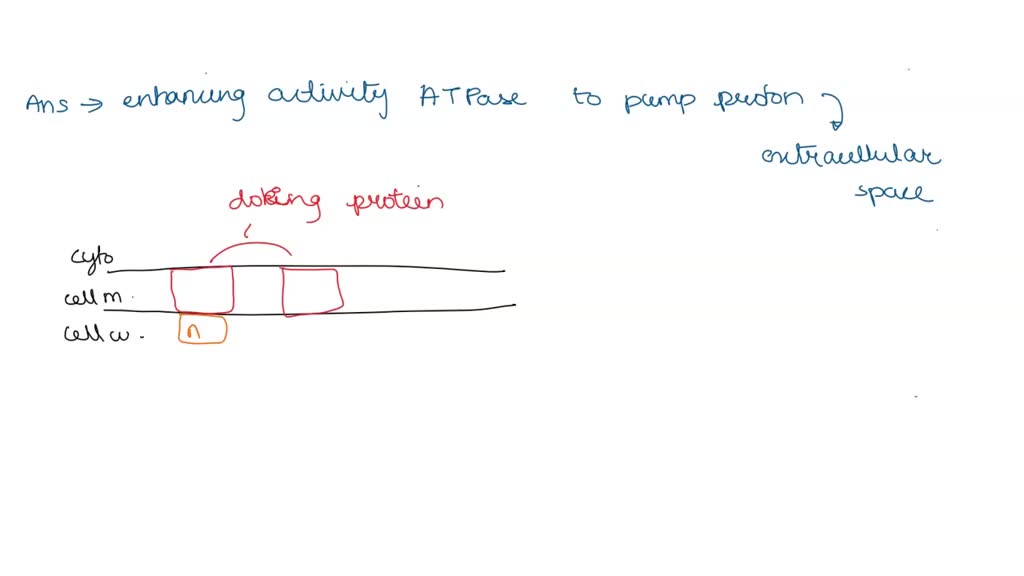 Ans → enhancing activity ATPase to pump proton
extracellular
space
doking protein
cyto
cell m.
cell w.
n